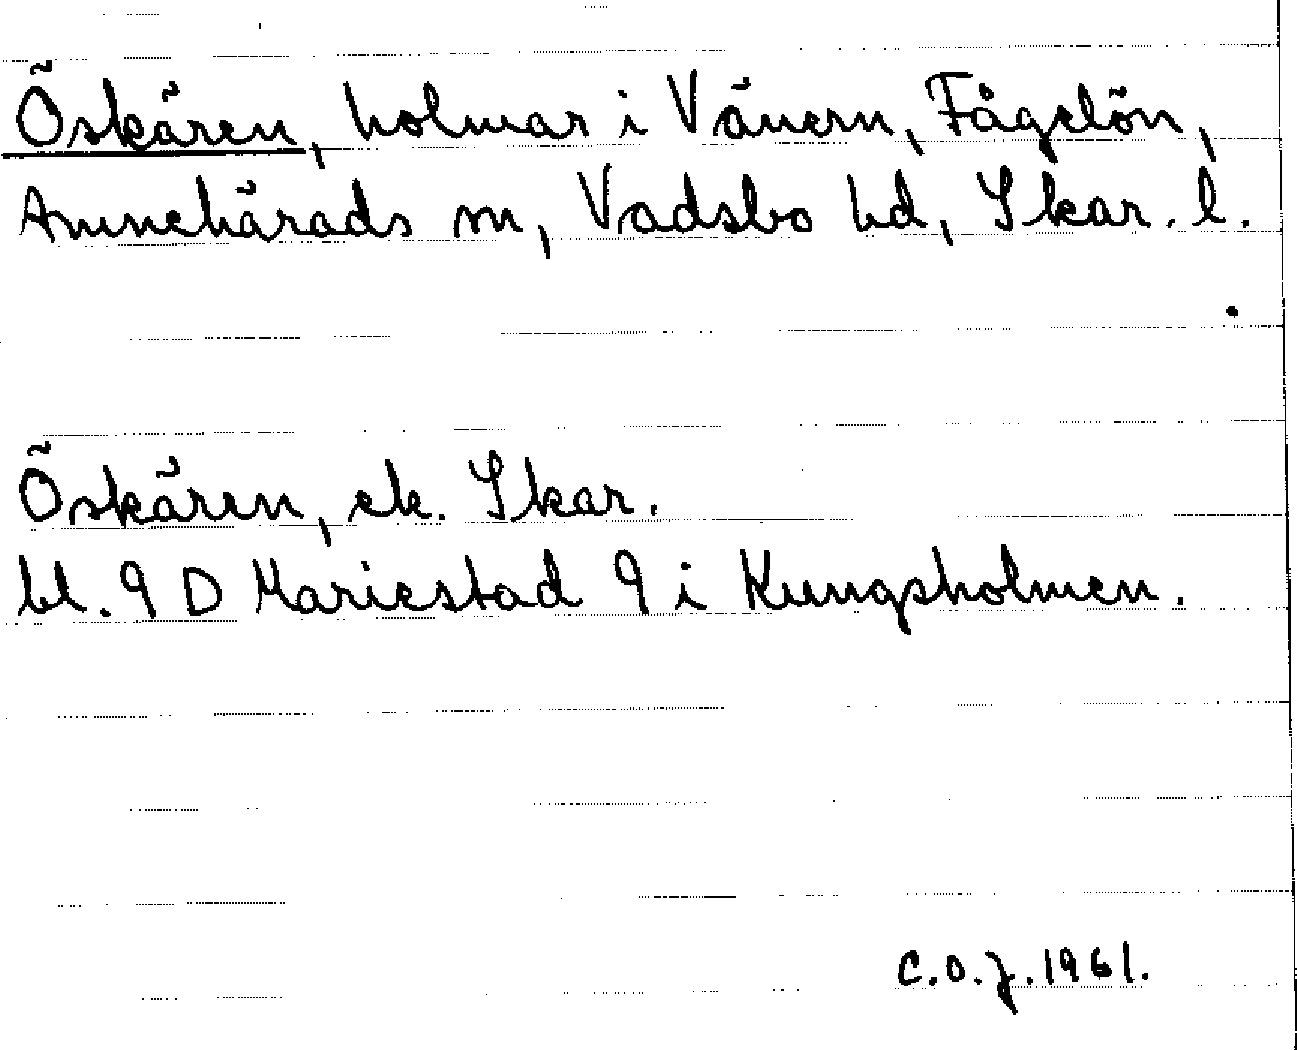 Öskären, holmar i Vänern, Fågelön,
Amnehärads sn, Vadsbo hd, Skar. l.
Öskären, ek. Skar.
bl. 9 D Mariestad 9 i Kungsholmen.
C.O.J. 1961.